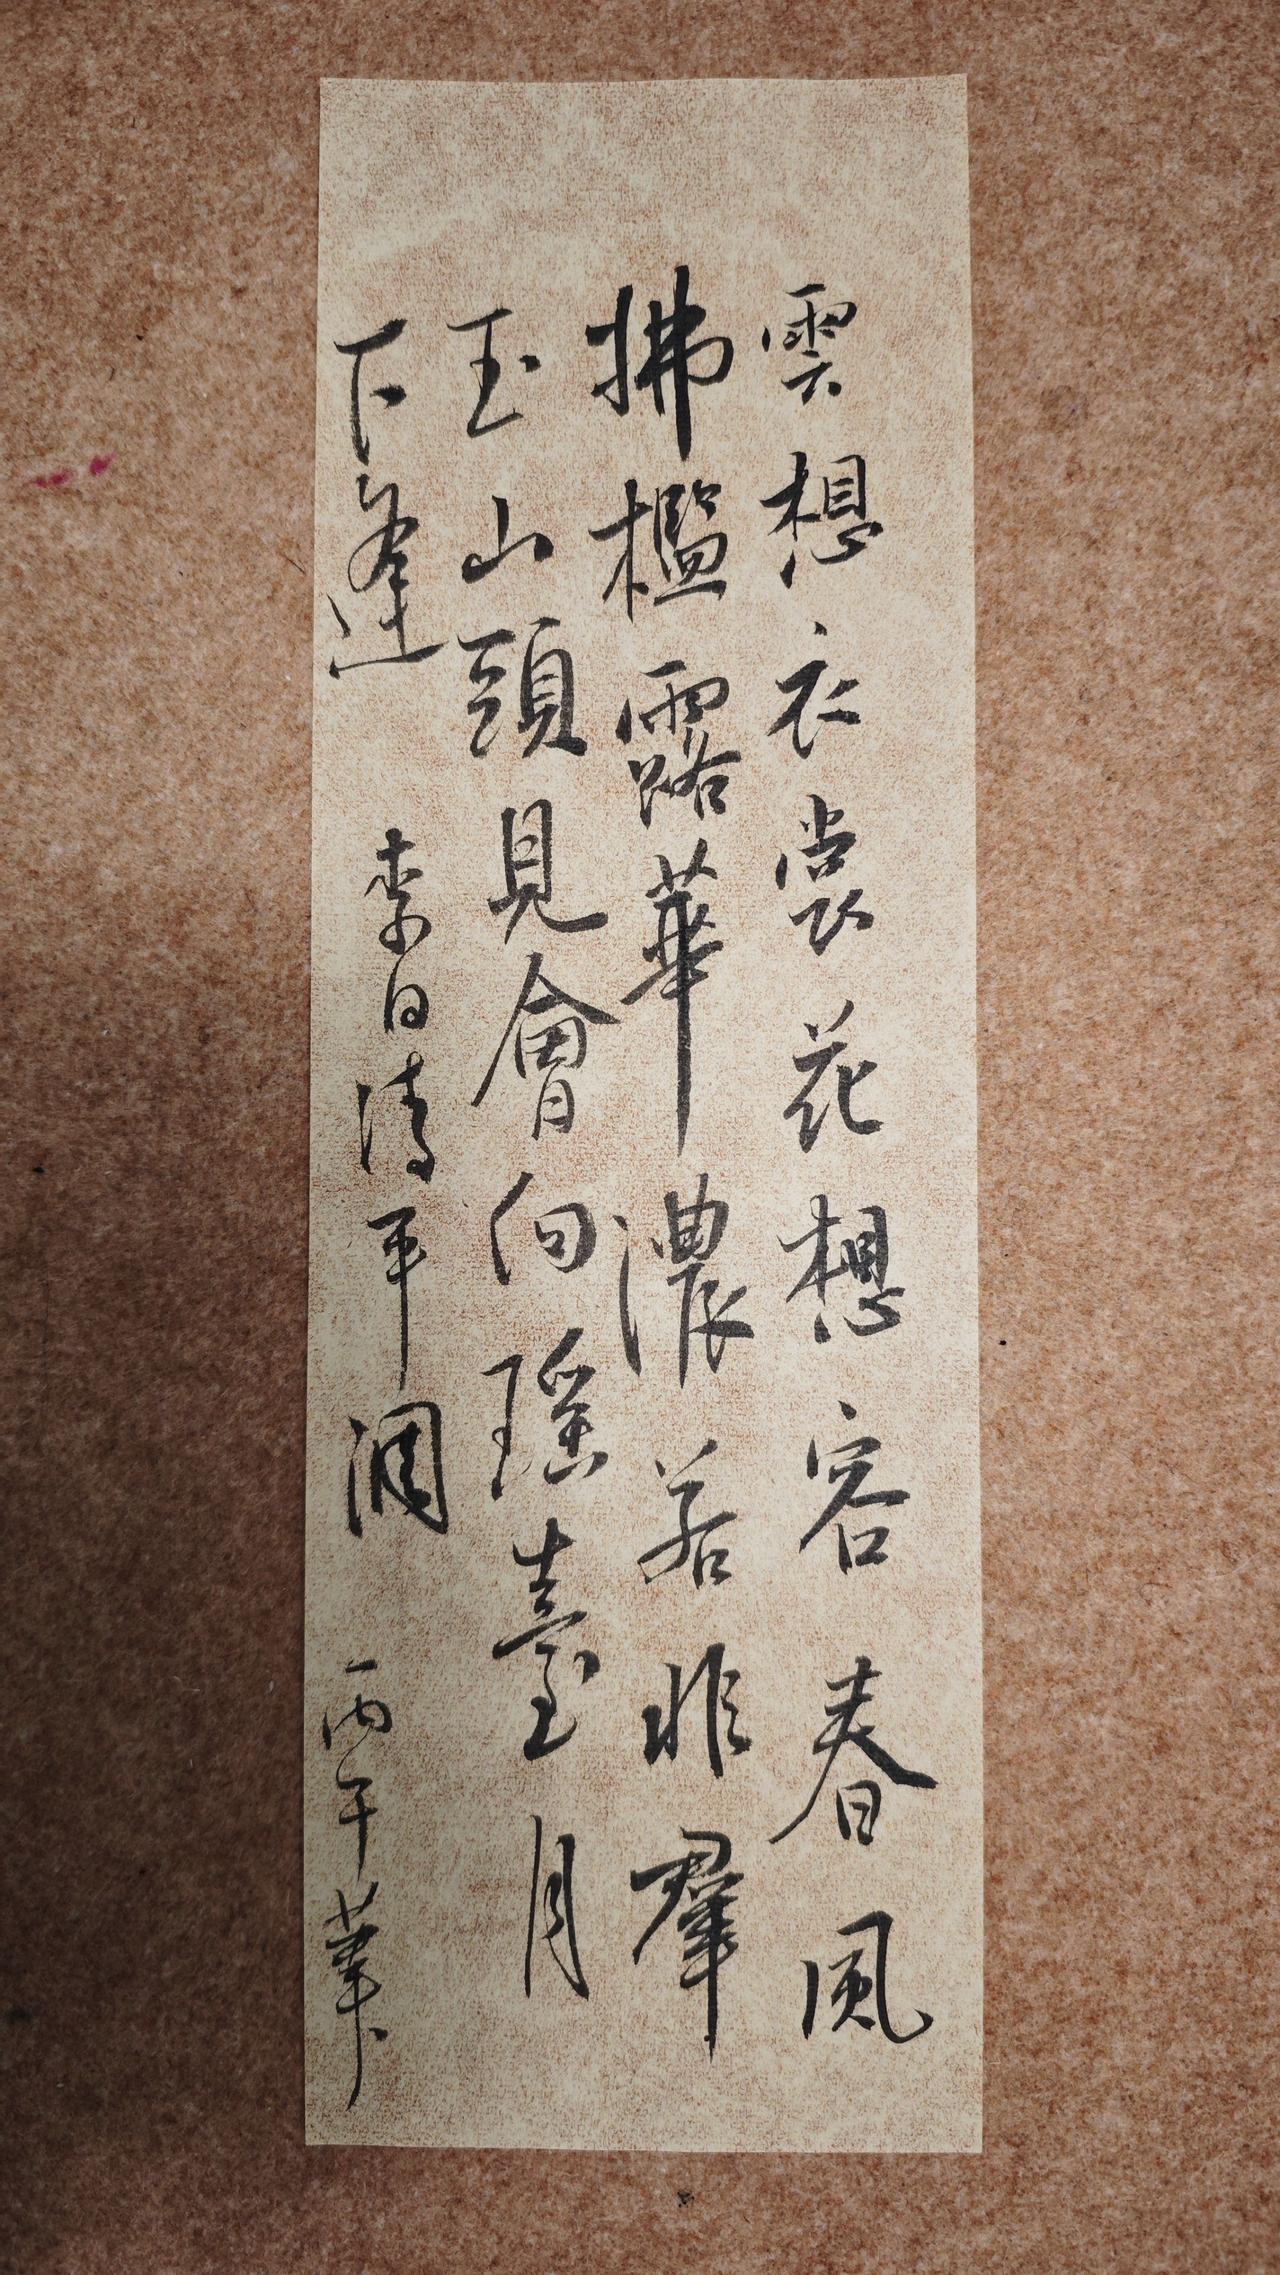 雲想衣裳花想容春風
拂檻露華濃若非羣
玉山頭見會向瑶臺月
下逢 李白清平調 丙午華